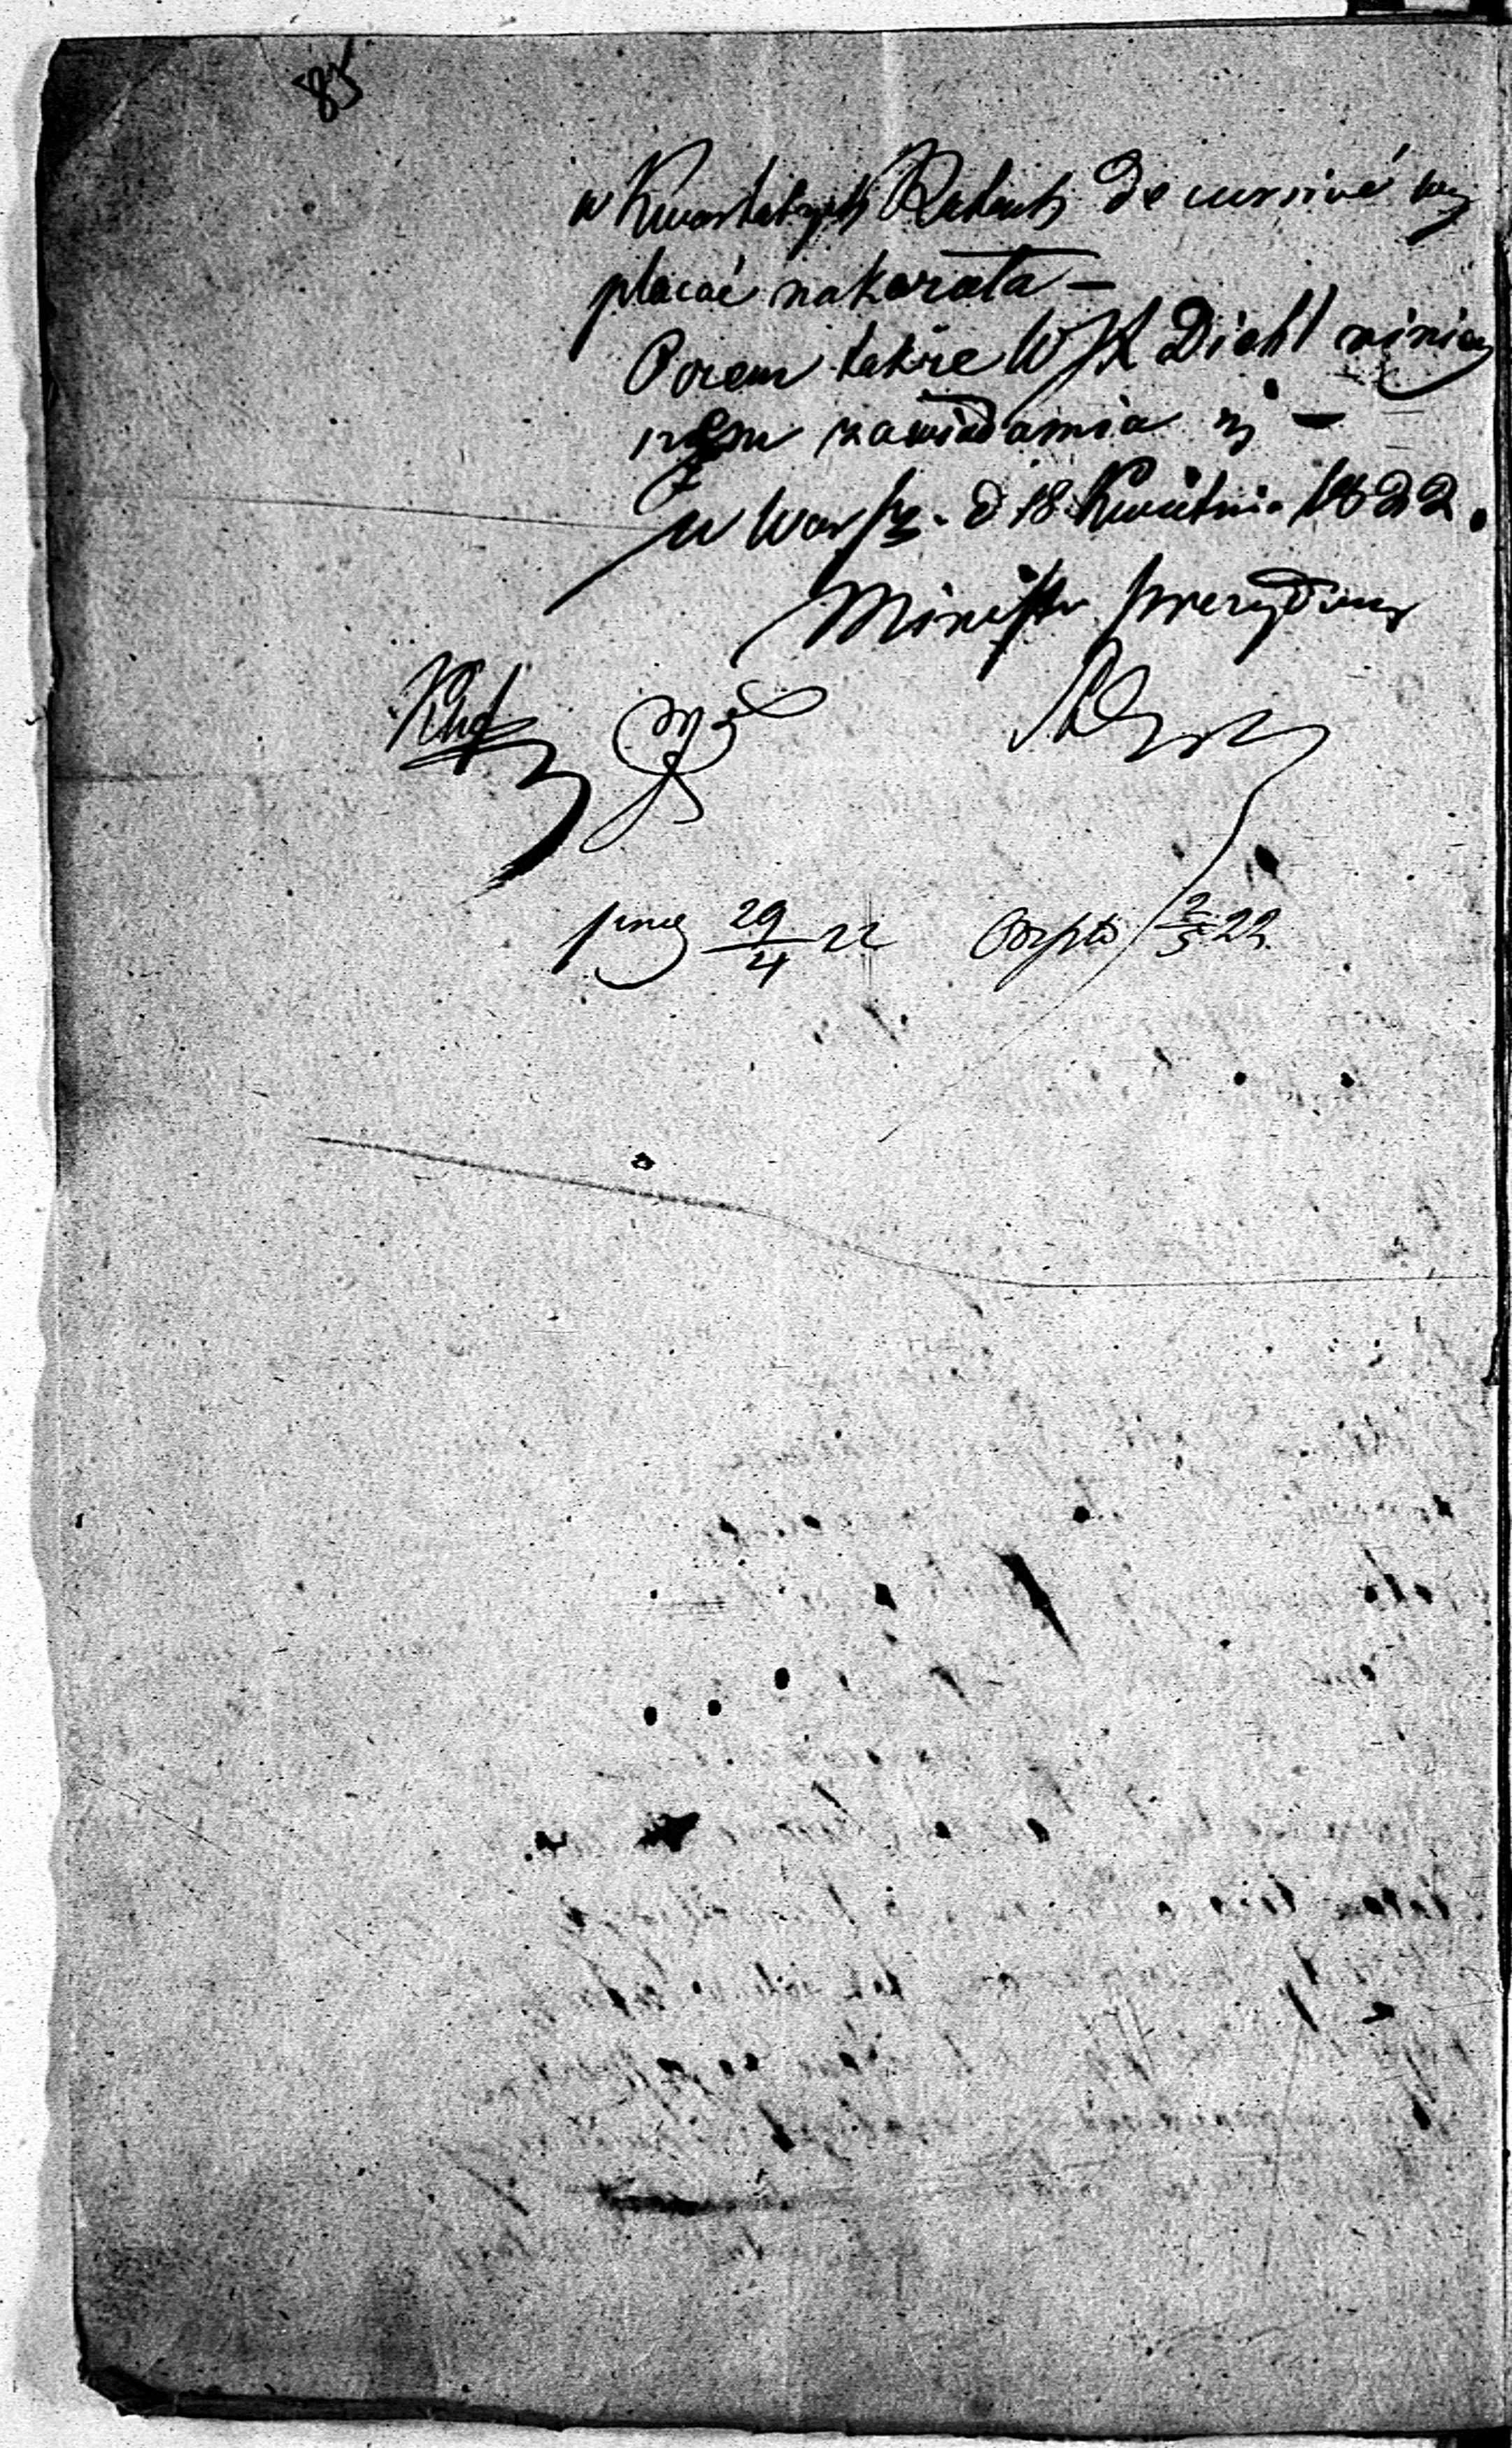 85
w Kwartalnych Ratach decursivé wy
płacać nakazała —
O czem także W JX Diehl niniej
szem zawiadamia się —
w Warsz. d 18 Kwietnia 1822.
Minister prezyduiący
29/4 22 2/5 22